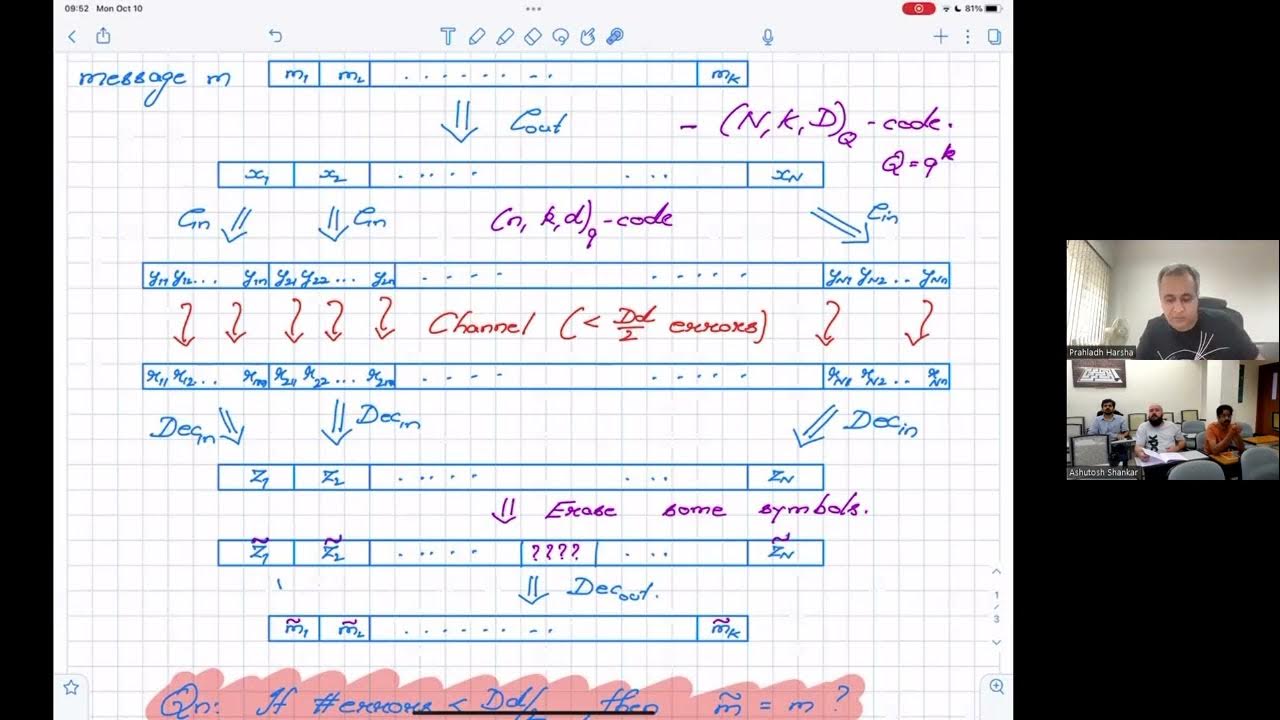 09:52 Mon Oct 10
81%
message m m₁ m₂ . . . . . . . . . m_K
C_out - (N, K, D)_Q - code.
Q = q^k
x₁ x₂ . . . . . . . . x_N
C_in C_in (n, k, d)_q - code C_in
y₁₁ y₁₂ ... y₁ₙ y₂₁ y₂₂ ... y₂ₙ . . . . . . . . . y_N1 y_N2 .. y_Nn
Channel (< Dd/2 errors)
r₁₁ r₁₂ ... r₁ₙ r₂₁ r₂₂ ... r₂ₙ . . . . . . . . . r_N1 r_N2 .. r_Nn
Dec_in Dec_in Dec_in
z₁ z₂ . . . . . . . . z_N
Erase some symbols.
z̃₁ z̃₂ . . . . . ???? . . . z̃_N
Dec_out.
m̃₁ m̃₂ . . . . . . . . . m̃_K
Qn: If #errors < Dd/2, then m̃ = m ?
1
/
3
Prahladh Harsha
Ashutosh Shankar